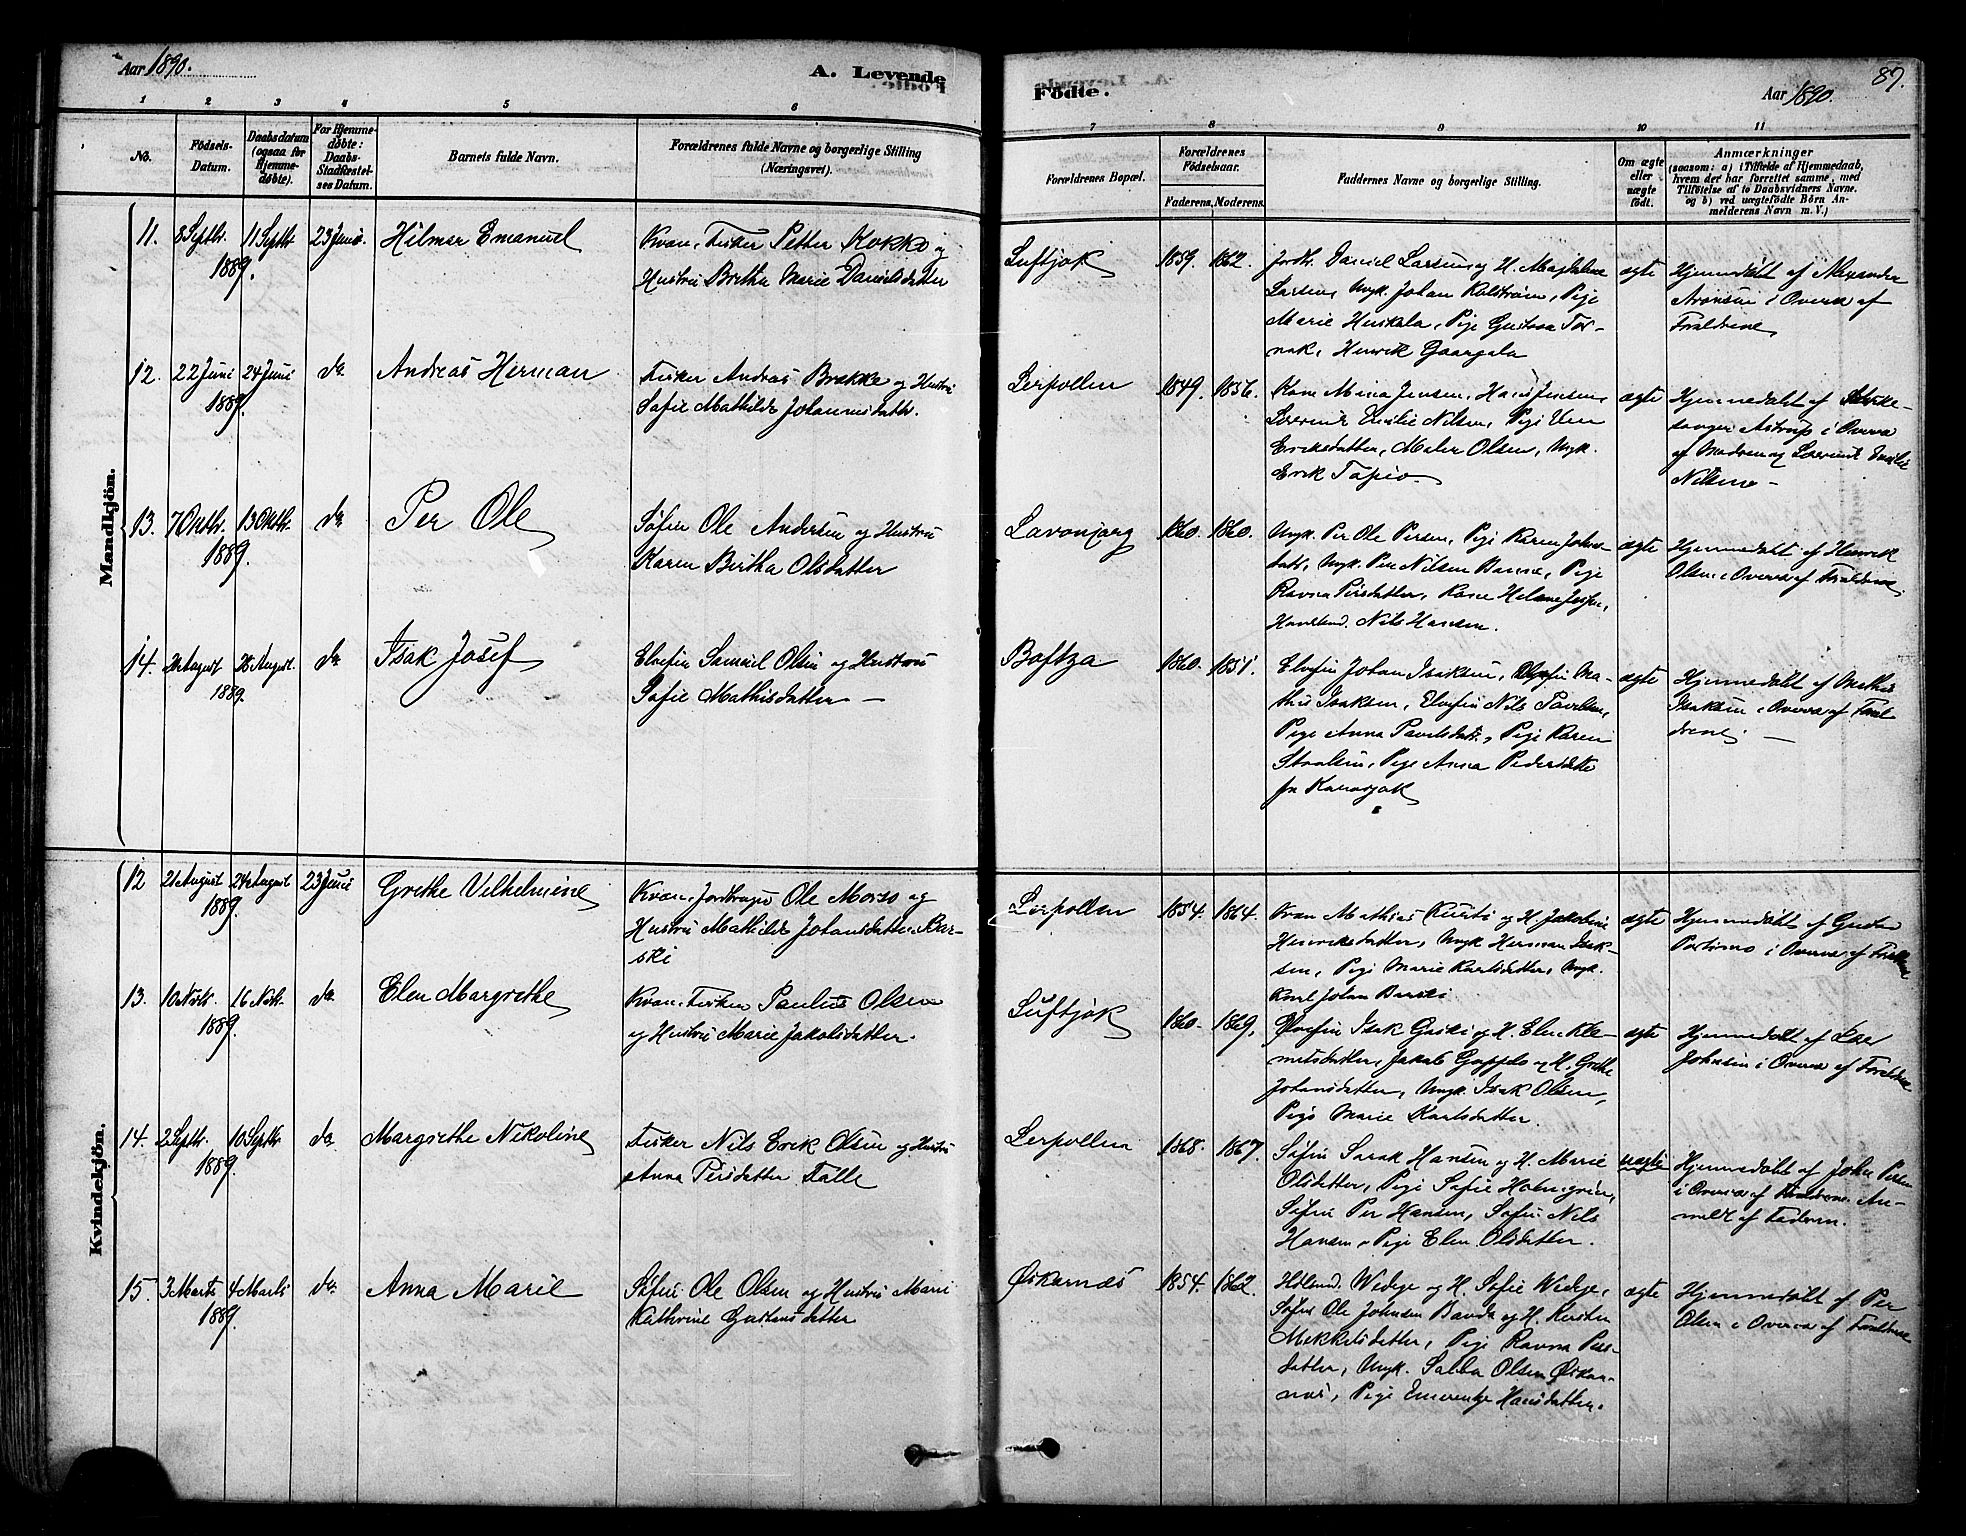 Aar 1890.
A. Levende
Födte.
Aar 1890.
87.
1 2 3 4 5 6 7 8 9 10 11
No.
Födsels-
Datum.
Daabsdatum
(ogsaa for
Hjemme-
döbte).
For Hjemme-
döbte:
Daabs-
Stadfæstel-
ses Datum.
Barnets fulde Navn.
Forældrenes fulde Navne og borgerlige Stilling
(Næringsvei).
Forældrenes Bopæl.
Forældrenes
Födselsaar.
Faderens. Moderens.
Faddernes Navne og borgerlige Stilling.
Om ægte
eller
uægte
födt.
Anmærkninger
(saasom: a) i Tilfælde af Hjemmedaab,
hvem der har forrettet samme, med
Tilföielse af to Daabsvidners Navne.
og b) ved uægtefödte Börn An-
melderens Navn m. V.)
Mandkjön.
11. 8 Septbr. 1889. 11 Septbr. 23 Juni. Hilmar Emanuel
Kvæn, Fisker Petter Kokko og
Hustru Britha Marie Danielsdatter
Luftjok 1859. 1862.
Jordbr. Daniel Larsen og H. Magdalena
Larsen, Ungk. Johan Kolstrøm, Pige
Marie Huskala, Pige Gustava Tor-
nak, Henrik Gaargala
ægte
Hjemmedøbt af Alexander
Aronsen i Overv. af
Forældrene
12. 22 Juni 1889. 24 Juni do Andreas Herman
Fisker Andras Brække og Hustru
Safie Mathilde Johannesdatter.
Lerpollen 1849. 1856.
Kone Mina Jensen, Hans Jensen,
Lærerinde Emilie Nilsen, Pige
Eriksdatter, Maler Olsen, Ungk.
Erik Tapio.
ægte
Hjemmedøbt af Kirke-
sanger Astrup i Overv.
af Madren og Lærerinde Emilie
Nilsen
13. 7 Oktbr. 1889. 13 Oktbr. do Per Ole
Søfin Ole Andersen og Hustru
Karen Birtha Olsdatter
Lavonjarg 1860. 1860.
Ungk. Per Ole Persen, Pige Karen Johns-
datt., Ungk. Per Nilsen Banne, Pige
Ravna Persdatter, Kone Helene Jesper,
Handelsmd. Nils Hansen.
ægte
Hjemmedøbt af Henrik
Olsen i Overv. af Forældrene
14. August 1889. 28 August. do Isak Josef
Elvefin Samuel Olsen og Hustru
Safie Mathisdatter
Boftza 1860. 1851.
Elvefin Johan Isaksen, Elvefin Ma-
this Isaksen, Elvefin Nils Pavelsen,
Pige Anna Pavelsdatt., Pige Karen
Pige Anna Pedersdatter
fra Karasjok
ægte
Hjemmedøbt af Mathis
Isaksen i Overv. af Foræl-
drene.
Kvindekjön.
12 21 August 1889. 24 August 23 Juni Grethe Vilhelmine
Kvæn, Jordbruger Ole Morso og
Hustru Mathilde Johansdatter Bar-
ski
Lerpollen 1854. 1864.
Kvæn Mathias Kurti og H. Jakobine
Henriksdatter, Ungk. Herman Isak-
sen, Pige Marie Karlsdatter, Ungk.
Karl Johan Barski
ægte
Hjemmedøbt af Gustav
Portimo i Overv. af Forældrene
13. 10 Novbr. 1889. 16 Novbr. do Elen Margrethe
Kvæn, Fisker Paulus Olsen
og Hustru Marie Jakobsdatter.
Luftjok 1860. 1869.
Elvefin Isak Guski og H. Elen Kle-
metsdatter, Jakob Guppelo og H. Grethe
Johansdatter, Ungk. Isak Olsen,
Pige Marie Karlsdatter.
ægte
Hjemmedøbt af Lars
Johnsen i Overv. af Forældrene
14. 2 Septbr. 1889. 10 Septbr. do Margrethe Nikoline
Fisker Nils Erik Olsen og Hustru
Anna Persdatter Falle
Lerpollen 1868. 1867.
Søfin Sarak Hansen og H. Marie
Olsdatter, Pige Safie Holmgren,
Søfin Per Hansen, Søfin Nils
Hansen, Pige Elen Olsdatter.
uægte
Hjemmedøbt af John Persen
i Overv. af Forældrene. An-
meldt af Faderen.
15. 3 Marts 1889. 4 Marts do. Anna Marie
Søfin Ole Olsen og Hustru Marie
Kathrine Gustavsdatter
Øskarnæs 1854. 1862.
Hdlsmd. Wedege og H. Safie Wedege,
Søfin Ole Johnsen Banda og H. Kirsten
Mikkelsdatter, Pige Ravna Pers-
datter, Ungk. Salba Olsen Øskar-
næs, Pige Emerentze Hansdatter.
ægte
Hjemmedøbt af Per
Olsen i Overv. af Forældrene